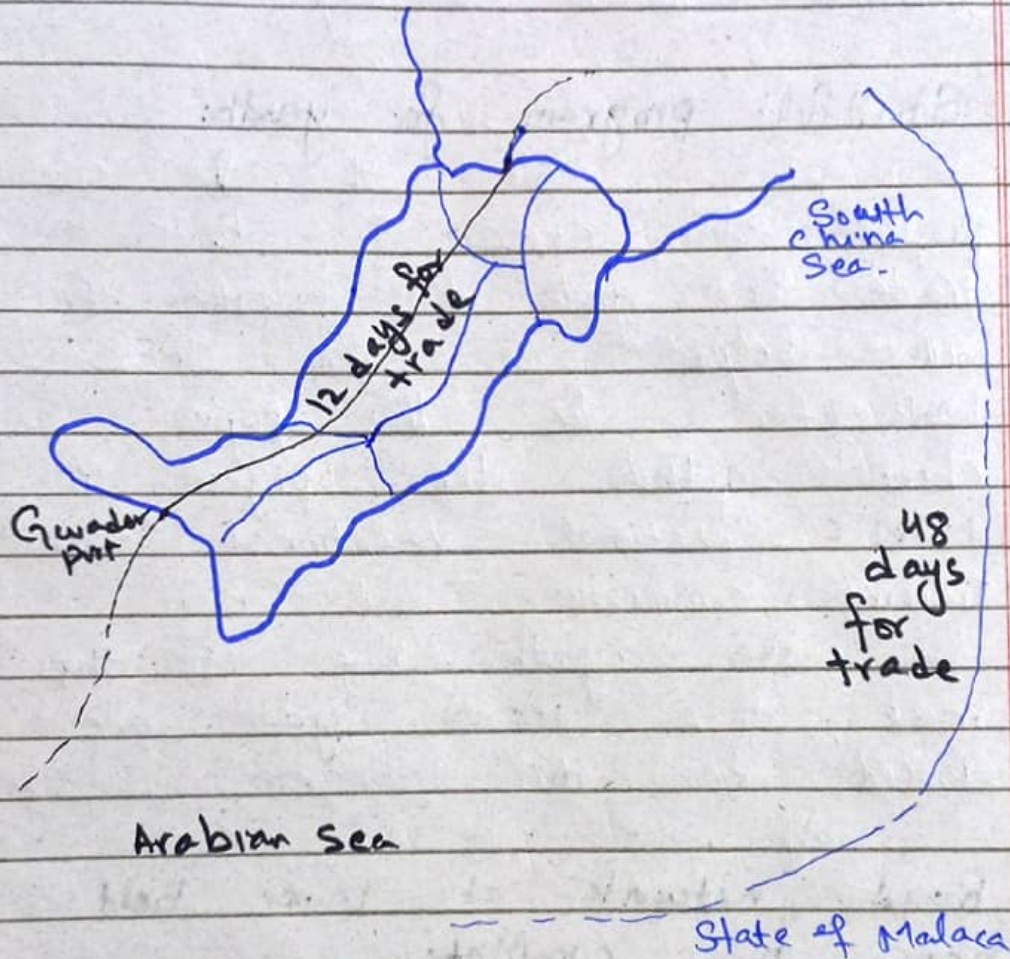 South
China
Sea.
12 days for
trade
Gwadar
port
48
days
for
trade
Arabian Sea
State of Malaca